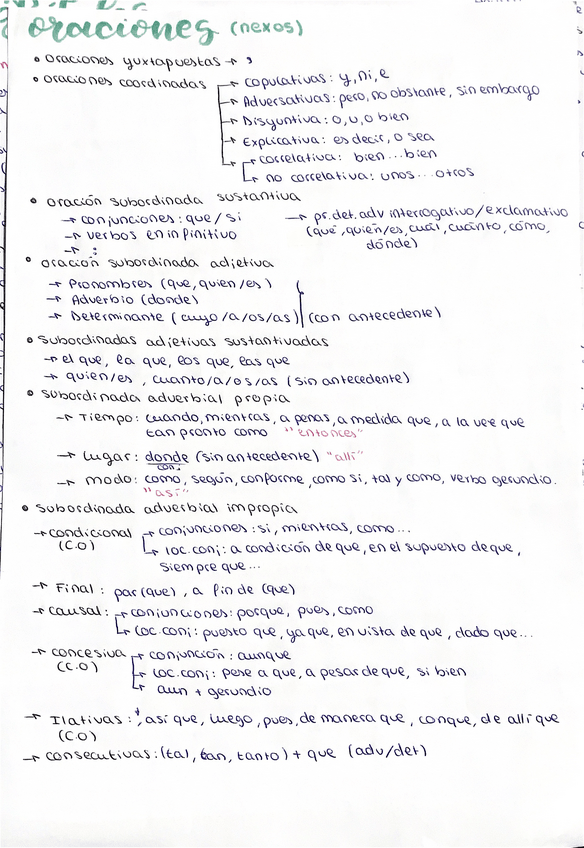 oraciones (nexos)
• oraciones yuxtapuestas → ,
• oraciones coordinadas → copulativas: y, ni, e
→ Adversativas: pero, no obstante, sin embargo
→ Disyuntiva: o, u, o bien
→ Explicativa: es decir, o sea
→ correlativa: bien...bien
→ no correlativa: unos...otros
• oración subordinada sustantiva
→ conjunciones: que/si → pr.det.adv interrogativo/exclamativo
→ verbos en infinitivo (que, quien/es, cuál, cuánto, cómo,
→ : dónde)
• oración subordinada adjetiva
→ Pronombres (que, quien/es)
→ Adverbio (donde)
→ Determinante (cuyo/a/os/as) (con antecedente)
• subordinadas adjetivas sustantivadas
→ el que, la que, los que, las que
→ quien/es, cuanto/a/os/as (sin antecedente)
• subordinada adverbial propia
→ Tiempo: cuando, mientras, a penas, a medida que, a la vez que
tan pronto como "entonces"
→ Lugar: donde (sin antecedente) "allí"
conj
→ modo: como, según, conforme, como si, tal y como, verbo gerundio.
"así"
• subordinada adverbial impropia
→ condicional → conjunciones: si, mientras, como...
(C.O) → loc.conj: a condición de que, en el supuesto de que,
siempre que...
→ Final: par(que), a fin de (que)
→ causal: → conjunciones: porque, pues, como
→ Loc.conj: puesto que, ya que, en vista de que, dado que...
→ concesiva → conjunción: aunque
(C.O) → loc.conj: pese a que, a pesar de que, si bien
→ aun + gerundio
→ Ilativas: así que, luego, pues, de manera que, conque, de allí que
(C.O)
→ consecutivas: (tal, tan, tanto) + que (adv/det)